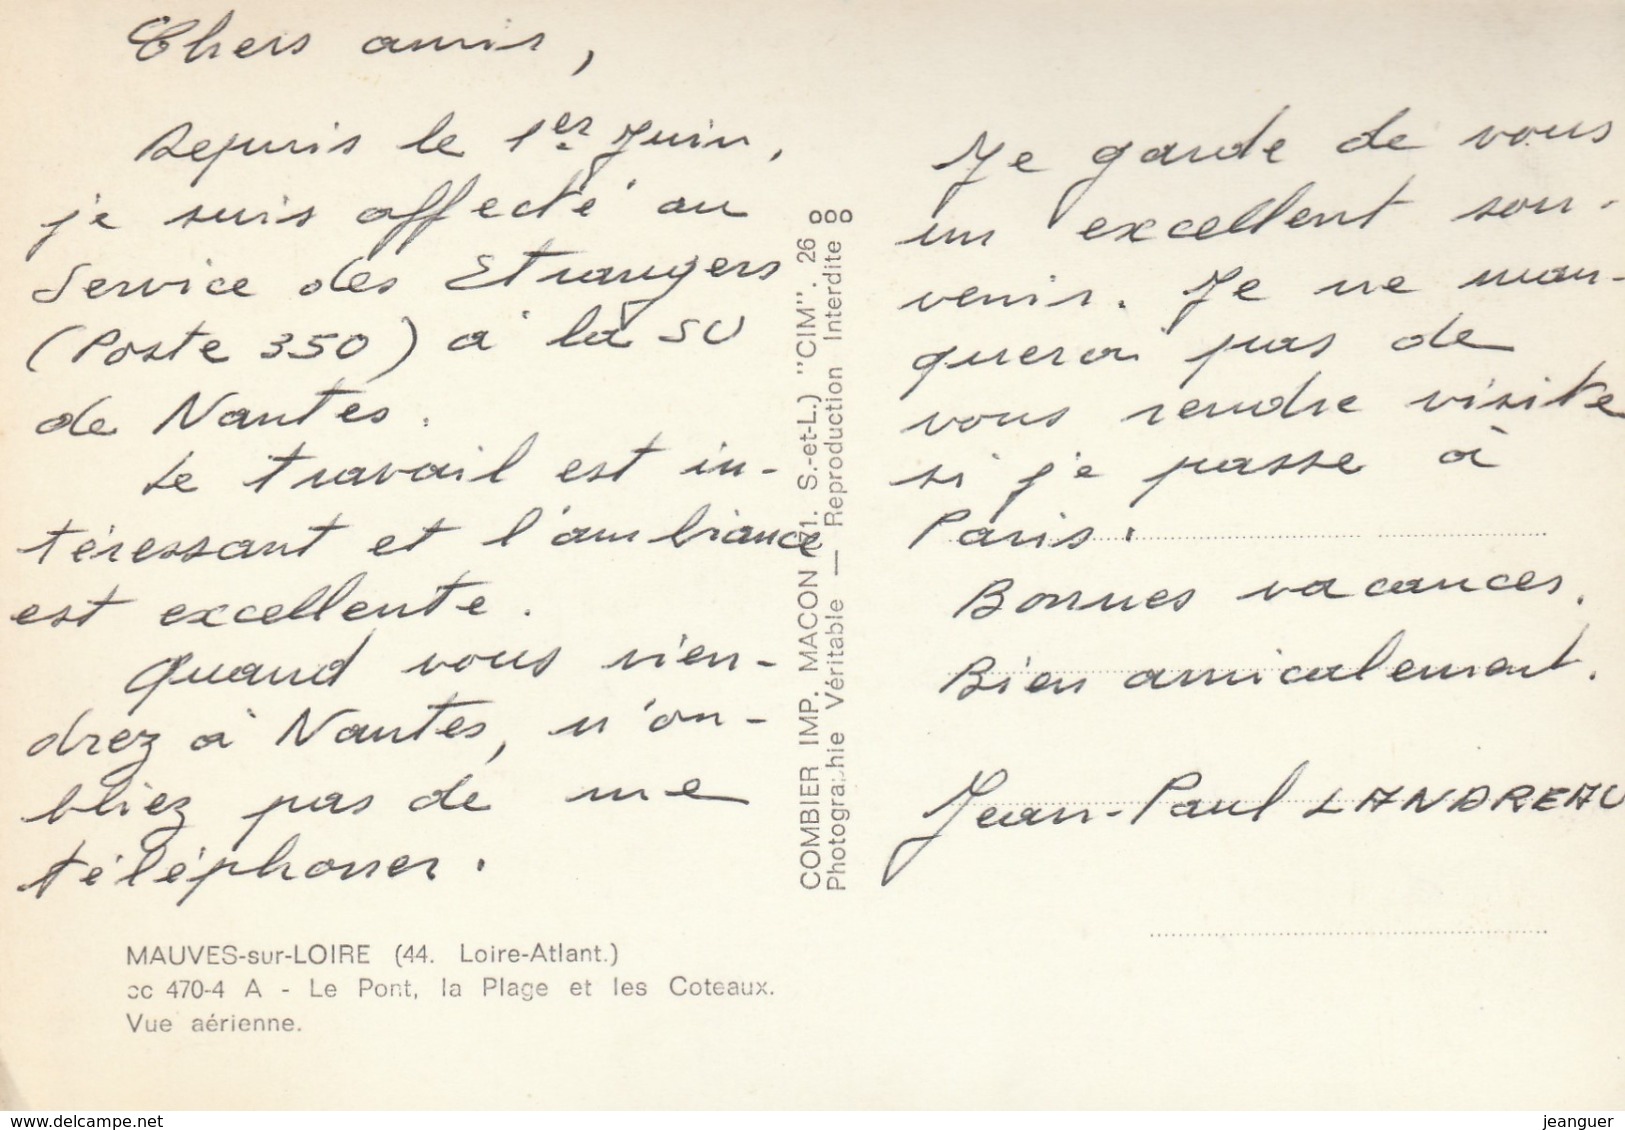 Chers amis,
Depuis le 1er Juin,
je suis affecté au
Service des Etrangers
(Poste 350) à la SU
de Nantes.
Le travail est in-
téressant et l'ambiance
est excellente.
Quand vous vien-
drez à Nantes, n'ou-
bliez pas de me
téléphoner.
MAUVES-sur-LOIRE (44. Loire-Atlant.)
cc 470-4 A - Le Pont, la Plage et les Coteaux.
Vue aérienne.
COMBIER IMP. MACON (71. S.-et-L.) "CIM". 26 8
Photographie Véritable — Reproduction Interdite 8
Je garde de vous
un excellent sou-
venir. Je ne man-
querai pas de
vous rendre visite
si je passe à
Paris.
Bonnes vacances.
Bien amicalement.
Jean-Paul LANDREAU
www.delcampe.net
jeanguer